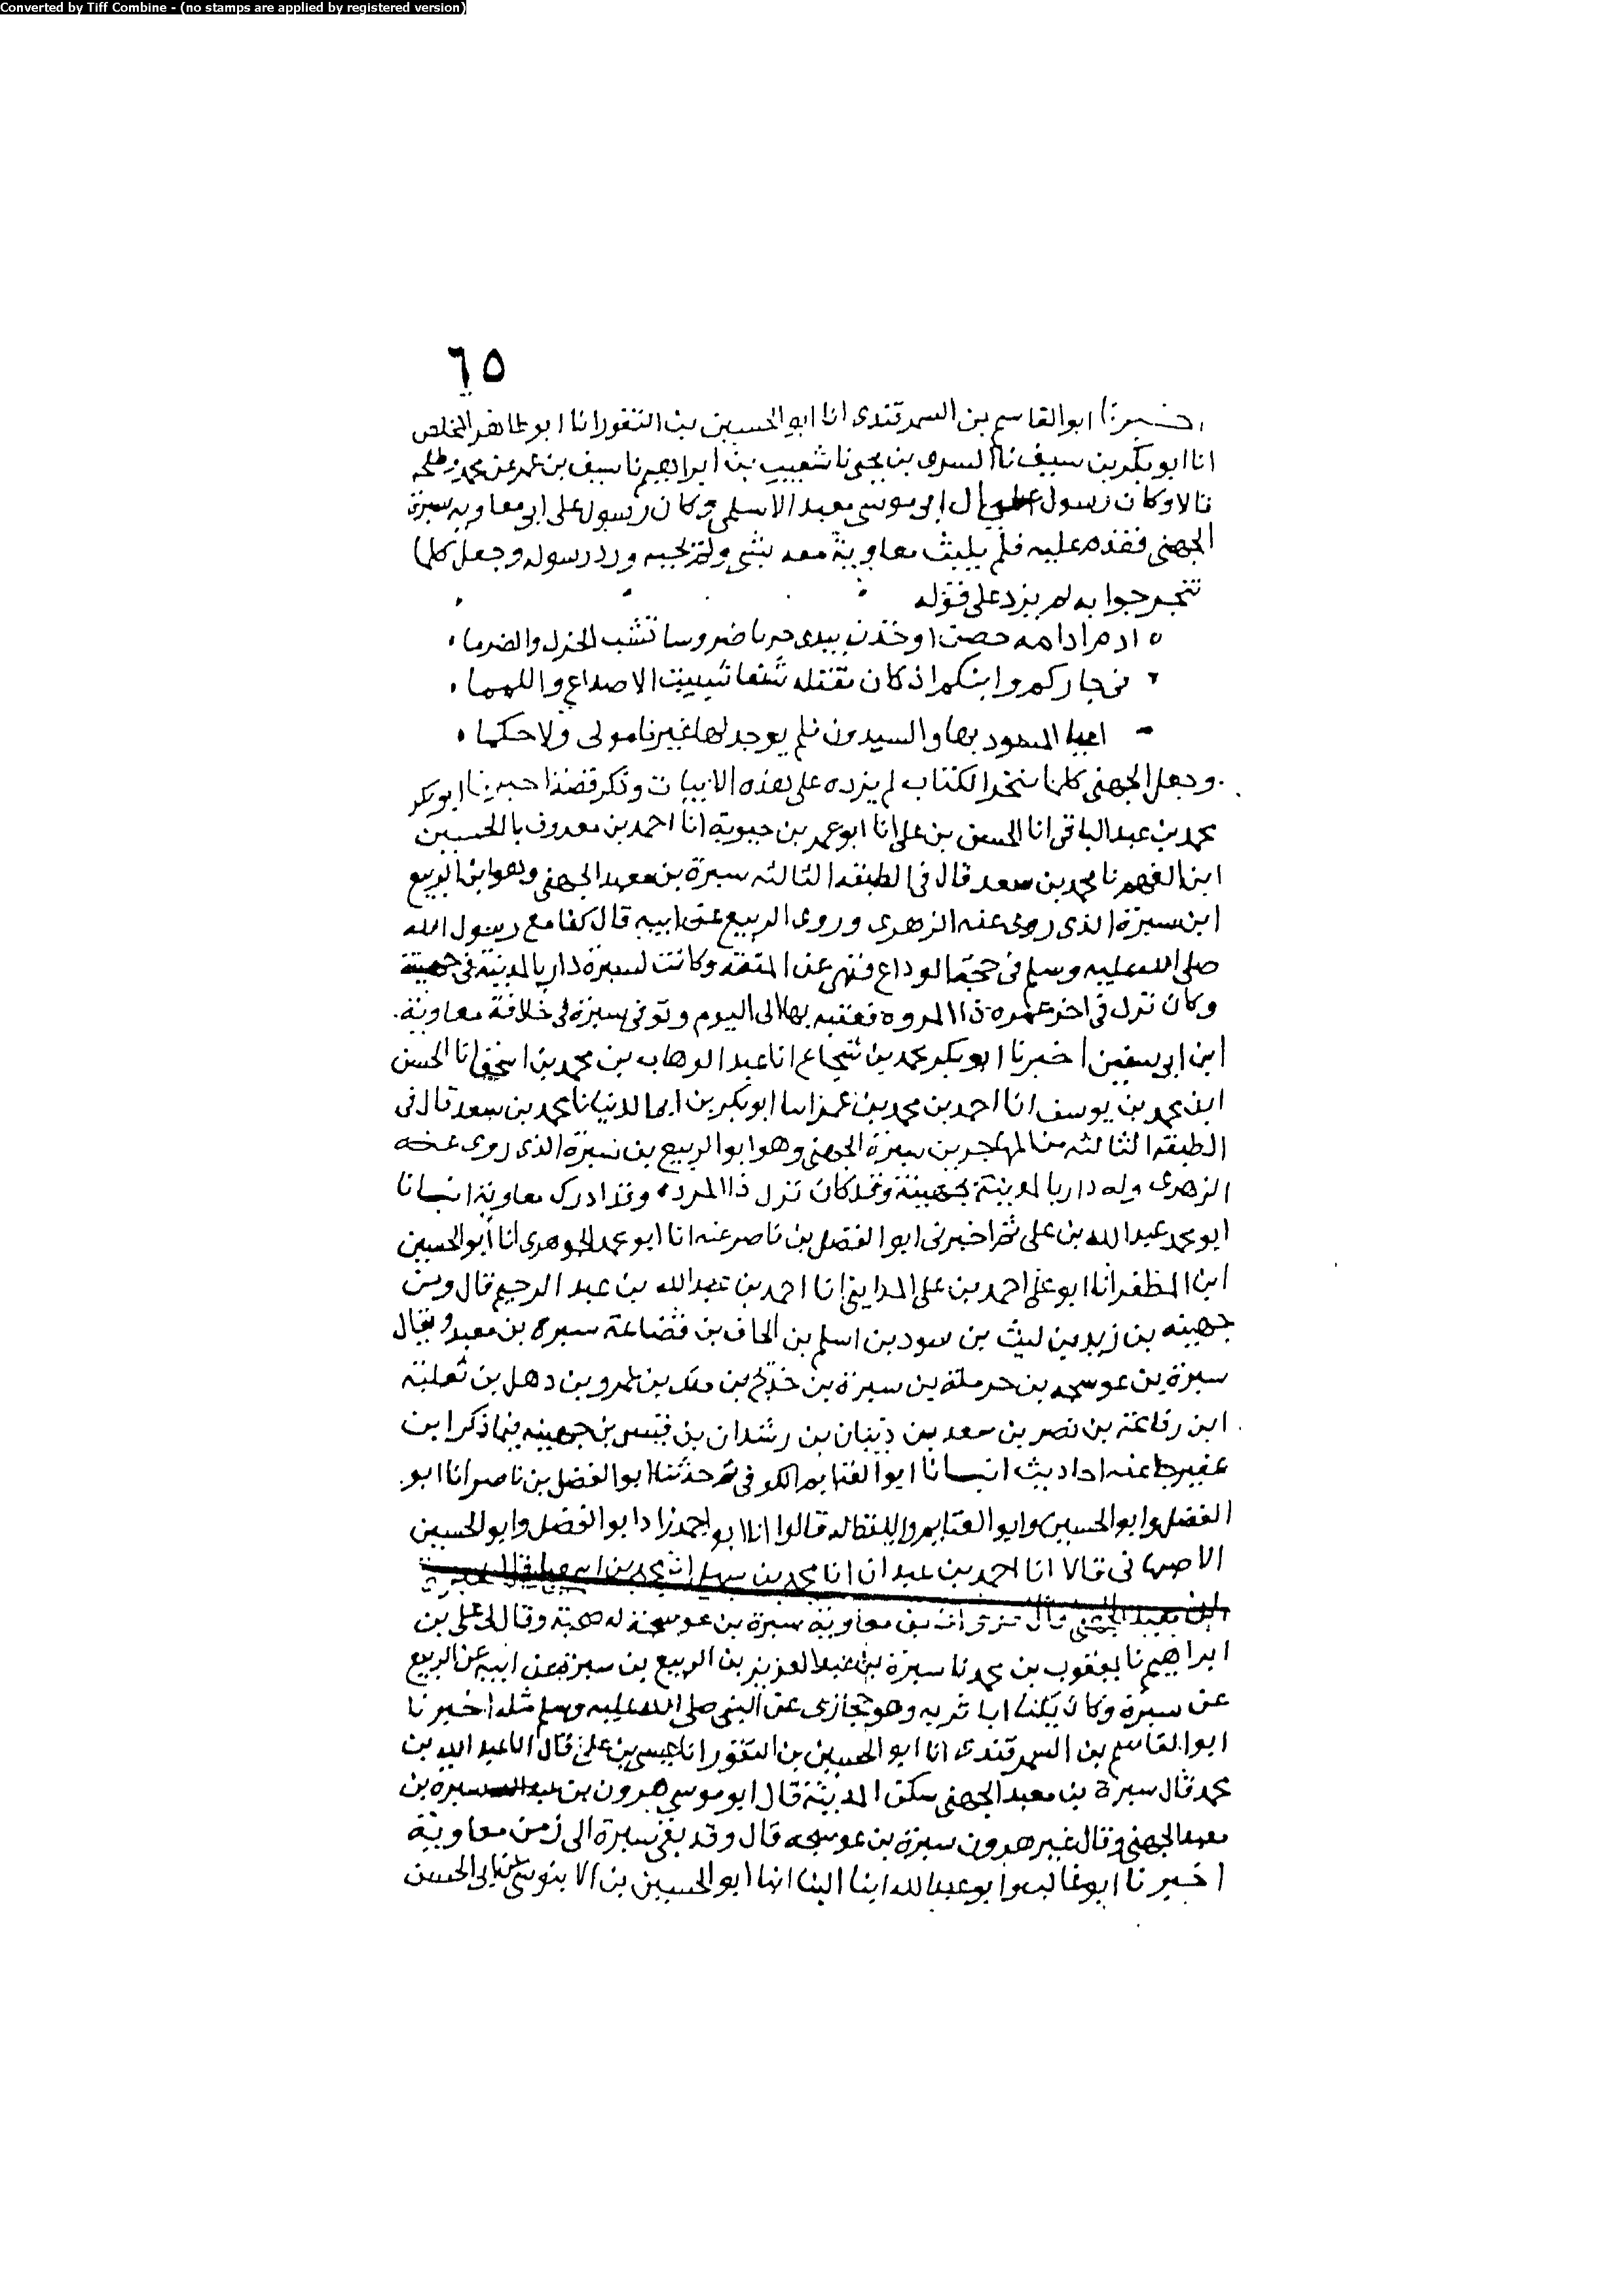 Converted by Tiff Combine - (no stamps are applied by registered version)
٦٥
اخبرنا ابو القاسم بن السمرقندى انا ابو الحسين بن النقور انا ابو طاهر المخلص
انا ابو بكر بن سيف نا السرى بن يحيى نا شعيب بن ابراهيم نا سيف بن عمر عن محمد وطلحة
قالا وكان رسول على الى ابى موسى معبد الاسلمى وكان رسول على الى معاوية سبرة
الجهنى فقدم عليه فلم يليث معاوية معه بشى ولم يجبه ورد رسوله وجعل كلما
تنجر جوابه لم يزد على قوله
ادم ادامه حصن او خذن بيدى حربا ضروسا تشب الجزل والضرما
فى جاركم وابنكم اذ كان مقتله شنعا شيبت الاصداع واللمما
اعيا المسود بها والسيدون فلم يوجد لها غيرنا مولى ولا حكما
وجعل الجهنى كلما تنجز الكتاب لم يزده على هذه الابيات وذكر قصة اخبرنا ابو بكر
محمد بن عبد الباقى انا الحسن بن على انا ابو عمر بن حيوية انا احمد بن معروف نا الحسين
ابن الفهم نا محمد بن سعد قال فى الطبقه الثالثه سبرة بن معبد الجهنى وهو ابو الربيع
ابن سبرة الذى روى عنه الزهرى وروى الربيع عن ابيه قال كنا مع رسول الله
صلى الله عليه وسلم فى حجة الوداع فنهى عن المتعة وكانت لسبرة دار بالمدينة فى جهينة
وكان نزل فى اخر عمره ذا المروه فعقبه بها الى اليوم وتوفى سبرة فى خلافة معاوية
ابن ابى سفين اخبرنا ابو بكر محمد بن شجاع انا عبد الوهاب بن محمد بن اسحق انا الحسن
ابن محمد بن يوسف انا احمد بن محمد بن عمر انا ابو بكر بن ابى الدنيا نا محمد بن سعد قال فى
الطبقه الثالثه من المهاجرين سبرة الجهنى وهو ابو الربيع بن سبرة الذى روى عنه
الزهرى وله دار بالمدينة بجهينة وقد كان نزل ذا المروه وقد ادرك معاوية انبانا
ابو محمد عبد الله بن على ثم اخبرنى ابو الفضل بن ناصر عنه انا ابو محمد الجوهرى انا ابو الحسين
ابن المظفر انا ابو على احمد بن على المداينى انا احمد بن عبد الله بن عبد الرحيم قال ومن
جهينه بن زيد بن ليث بن سود بن اسلم بن الحاف بن قضاعة سبره بن معبد ويقال
سبرة بن عوسجه بن حرملة بن سبرة بن خديج بن ملك بن عمرو بن ذهل بن ثعلبة
ابن رفاعة بن نصر بن سعد بن ذبيان بن رشدان بن قيس بن جهينه فيما ذكر ابن
عفير عنه احاديث انبانا ابو الغنايم الكوفى ثم حدثنا ابو الفضل بن ناصر انا ابو
الفضل وابو الحسين وابو الغنايم واللفظ له قالوا انا ابو احمد زاد ابو الفضل وابو الحسين
الاصبهانى قالا انا احمد بن عبدان انا محمد بن سهل انا محمد بن اسمعيل قال سبرة
ابن معبد الجهنى قال معاوية سبرة بن عوسجة له صحبة وقال لى على بن
ابراهيم نا يعقوب بن محمد نا سبرة بن عبد العزيز بن الربيع بن سبرة عن ابيه عن الربيع
عن سبرة وكان يكنا ابا ثريه وهو حجازى عن النبى صلى الله عليه وسلم مثله اخبرنا
ابو القاسم بن السمرقندى انا ابو الحسين بن النقور انا عيسى بن على قال انا عبد الله بن
محمد قال سبرة بن معبد الجهنى سكن المدينة قال ابو موسى هرون بن عبد الله سبرة بن
معبد الجهنى وقال غير هرون سبرة بن عوسجه قال وقد بقى سبرة الى زمن معاوية
اخبرنا ابو غالب وابو عبد الله ابنا البنا انبا ابو الحسين بن الابنوسى عن ابى الحسن